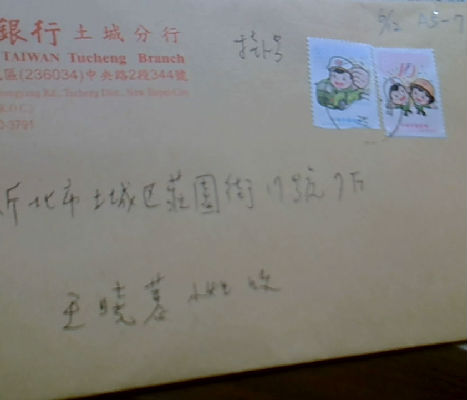 銀行 土城分行
TAIWAN Tucheng Branch
區(236034)中央路2段344號
Rd., Tucheng Dist., New Taipei City
R.O.C.)
0-3791
掛號
10
新北市土城區莊園街17號7F
王曉 小姐 收